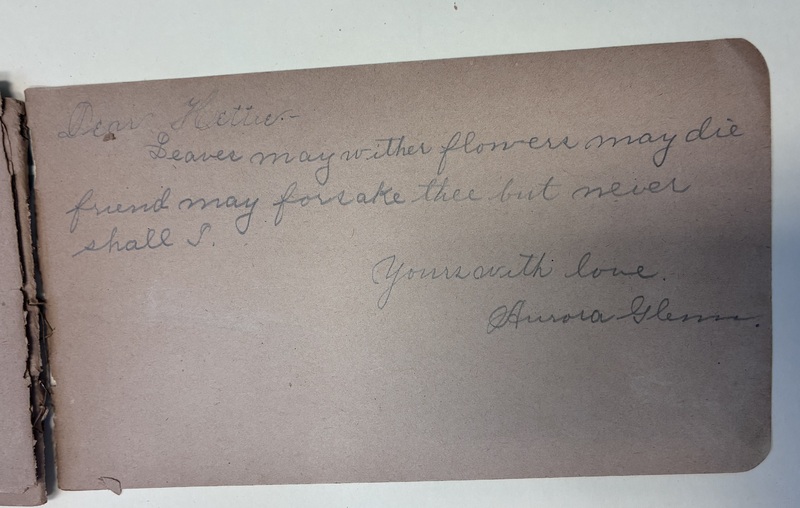 Dear Hettie-
Leaves may wither flowers may die
friend may forsake thee but never
shall I.
Yours with love.
Aurora Glenn.